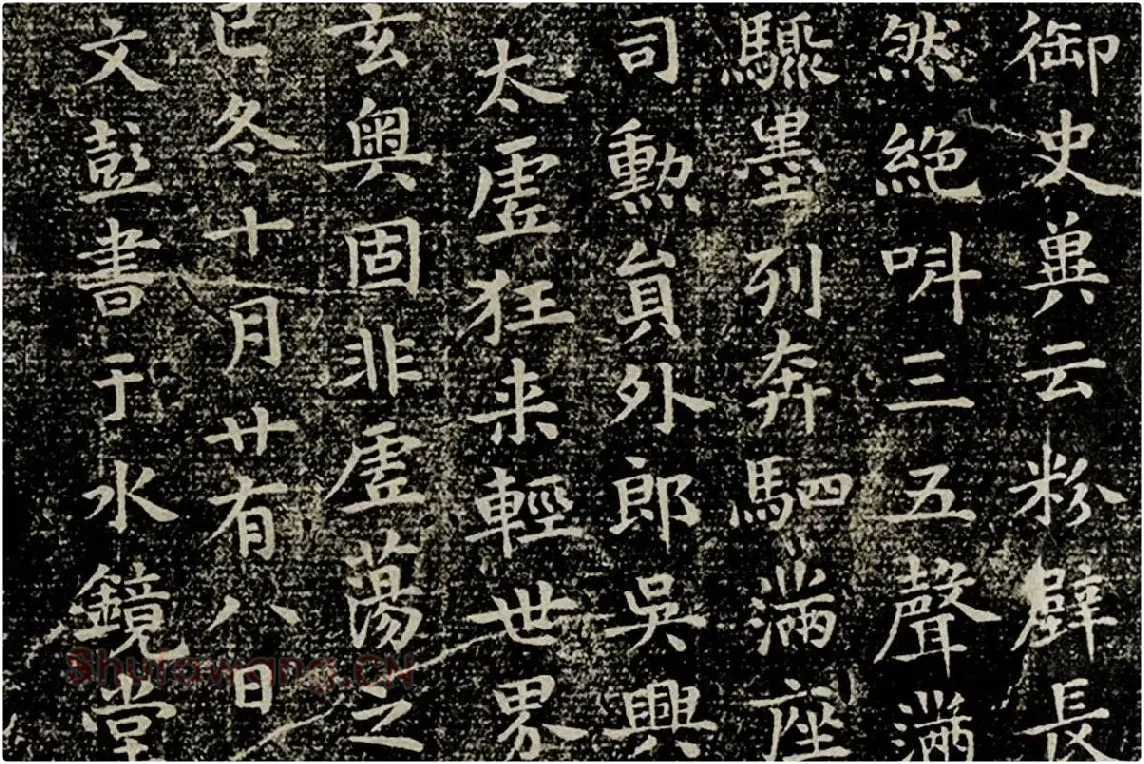 御史冀云粉壁長
然絕呌三五聲滿
驟墨列奔駟滿座
司勳員外郎吳興
太虛狂来輕世界
玄奧固非虛蕩之
巳冬十月廿有八日
文彭書于水鏡堂
Shufawang.CN